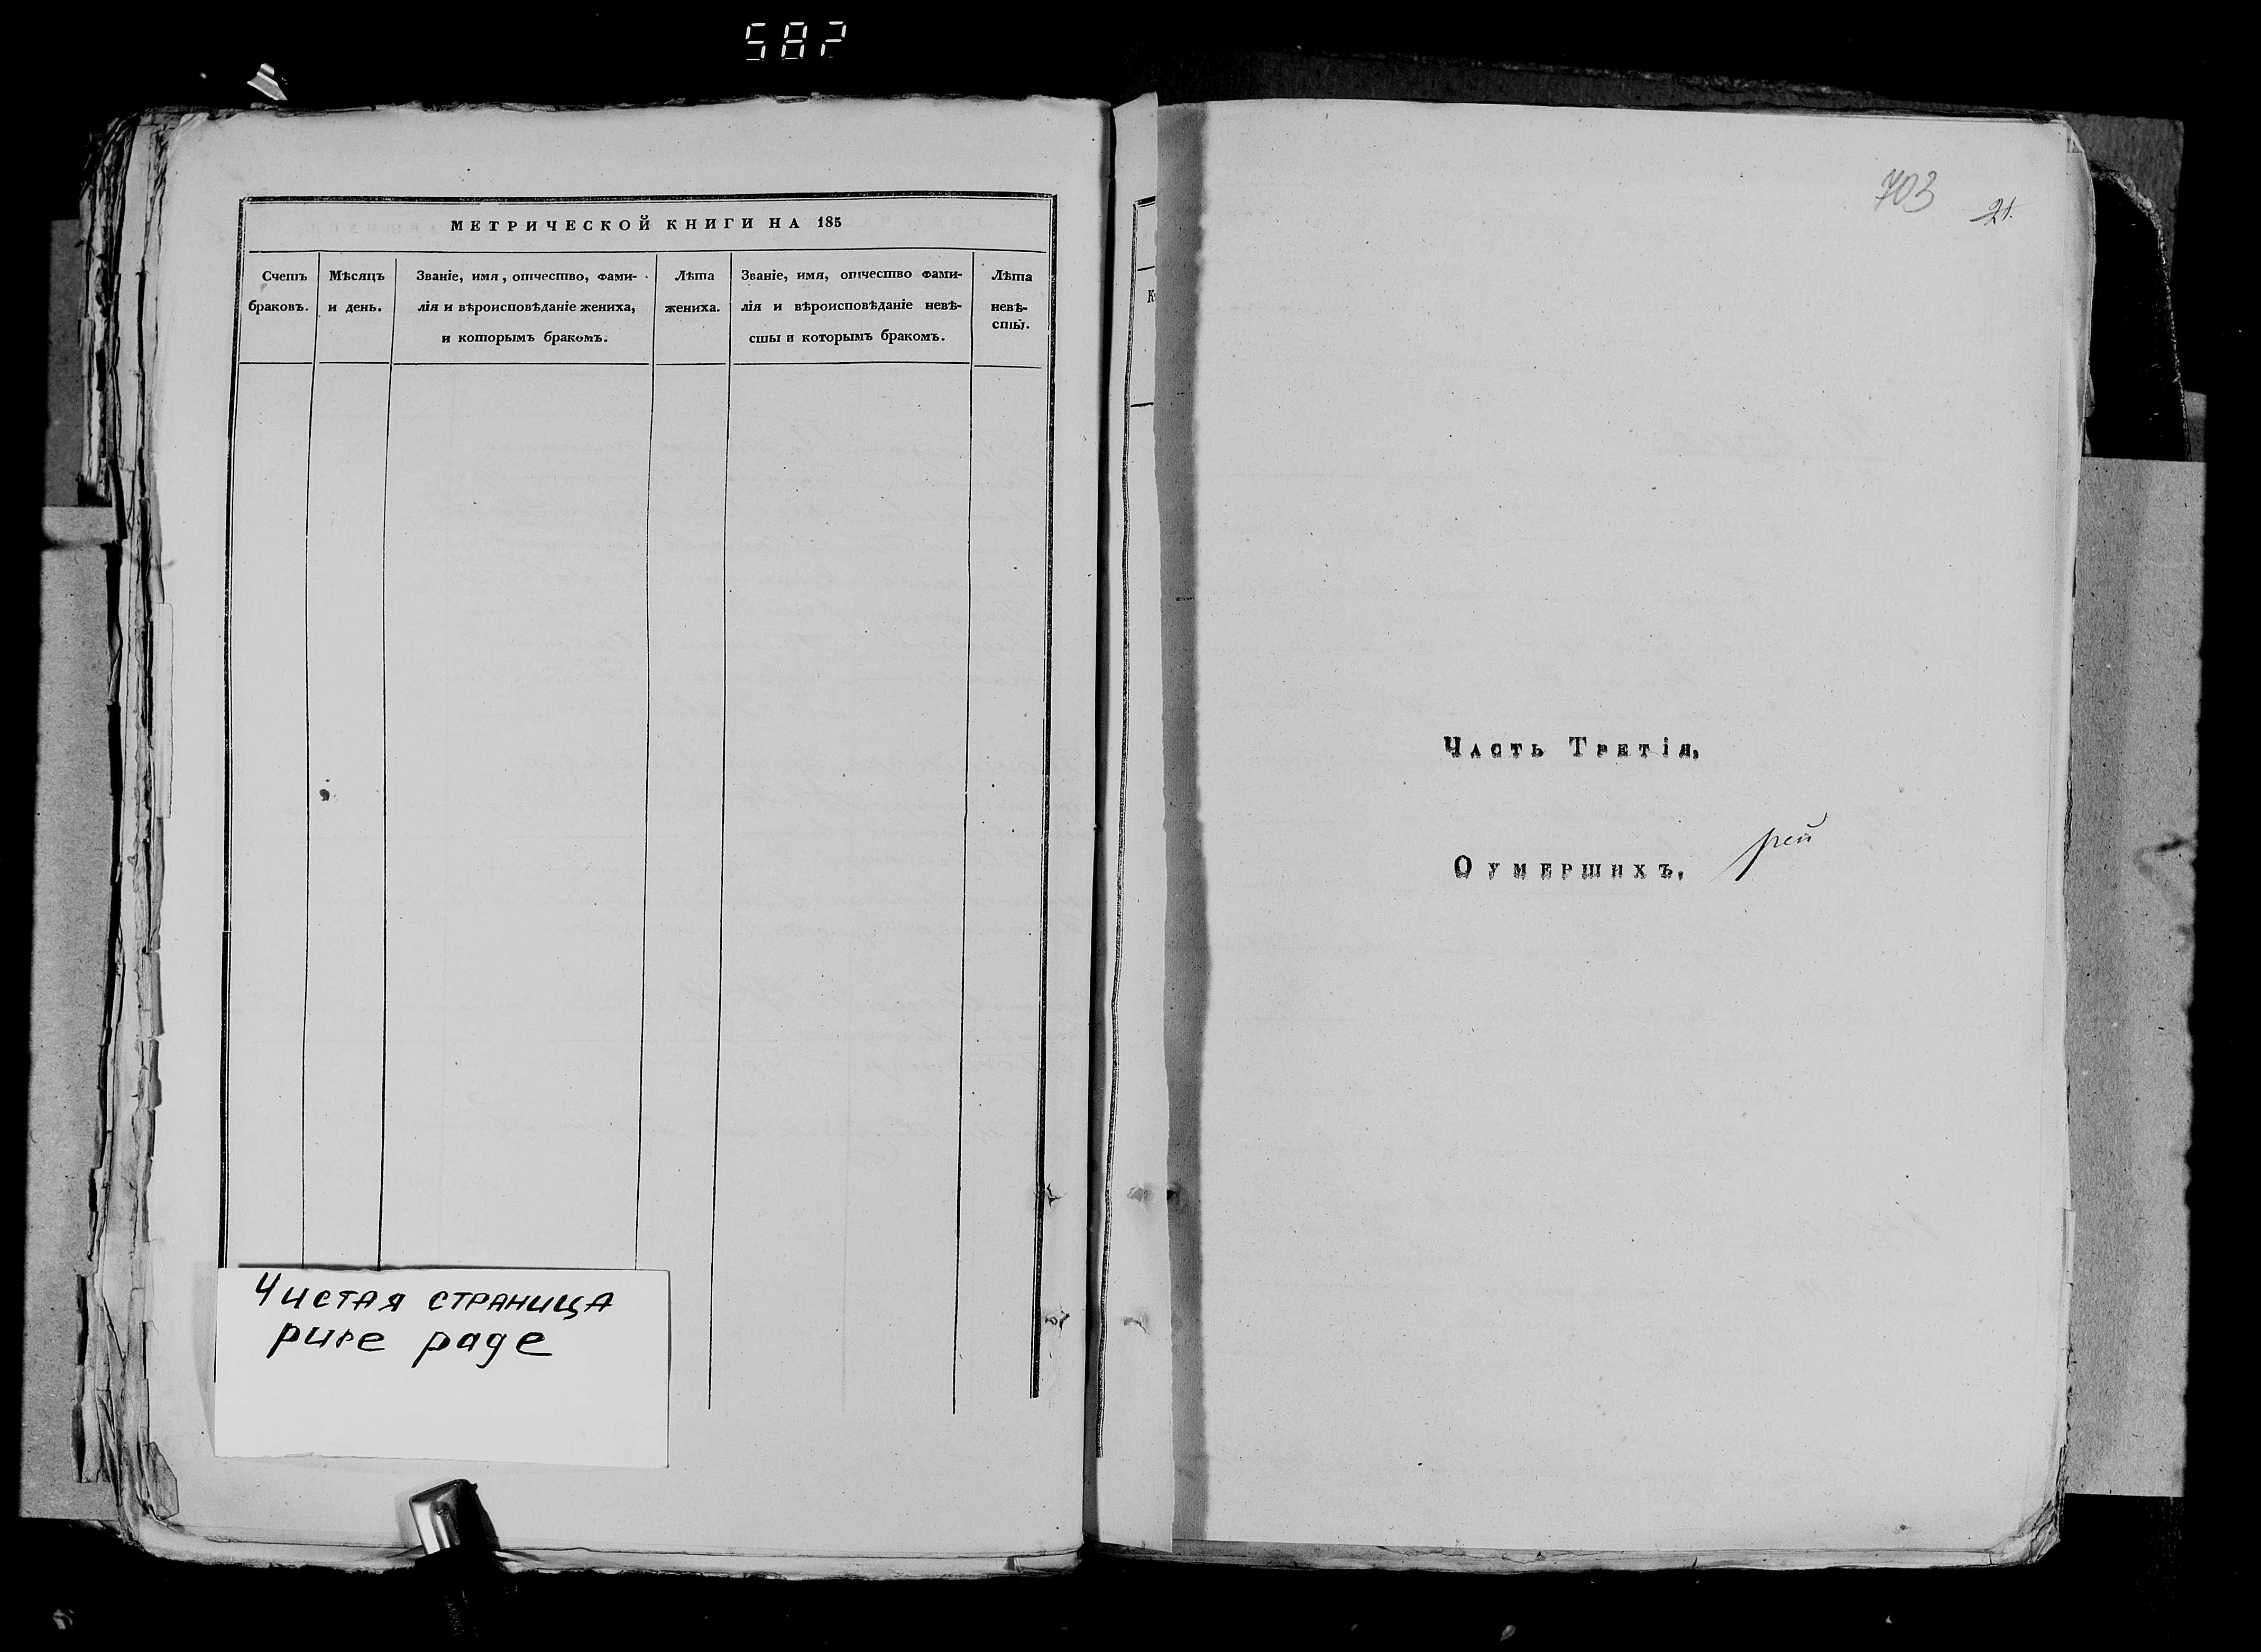 587
МЕТРИЧЕСКОЙ КНИГИ НА 185
Счетъ браковъ.
Мѣсяцъ и день.
Званіе, имя, отчество, фами-
лія и вѣроисповѣданіе жениха,
и которымъ бракомъ.
Лѣта
жениха.
Званіе, имя, отчество фами-
лія и вѣроисповѣданіе невѣ-
сты и которымъ бракомъ.
Лѣта
невѣ-
сты.
Чистая страница
pure page
703
21.
Часть Третія,
О умершихъ,
рей